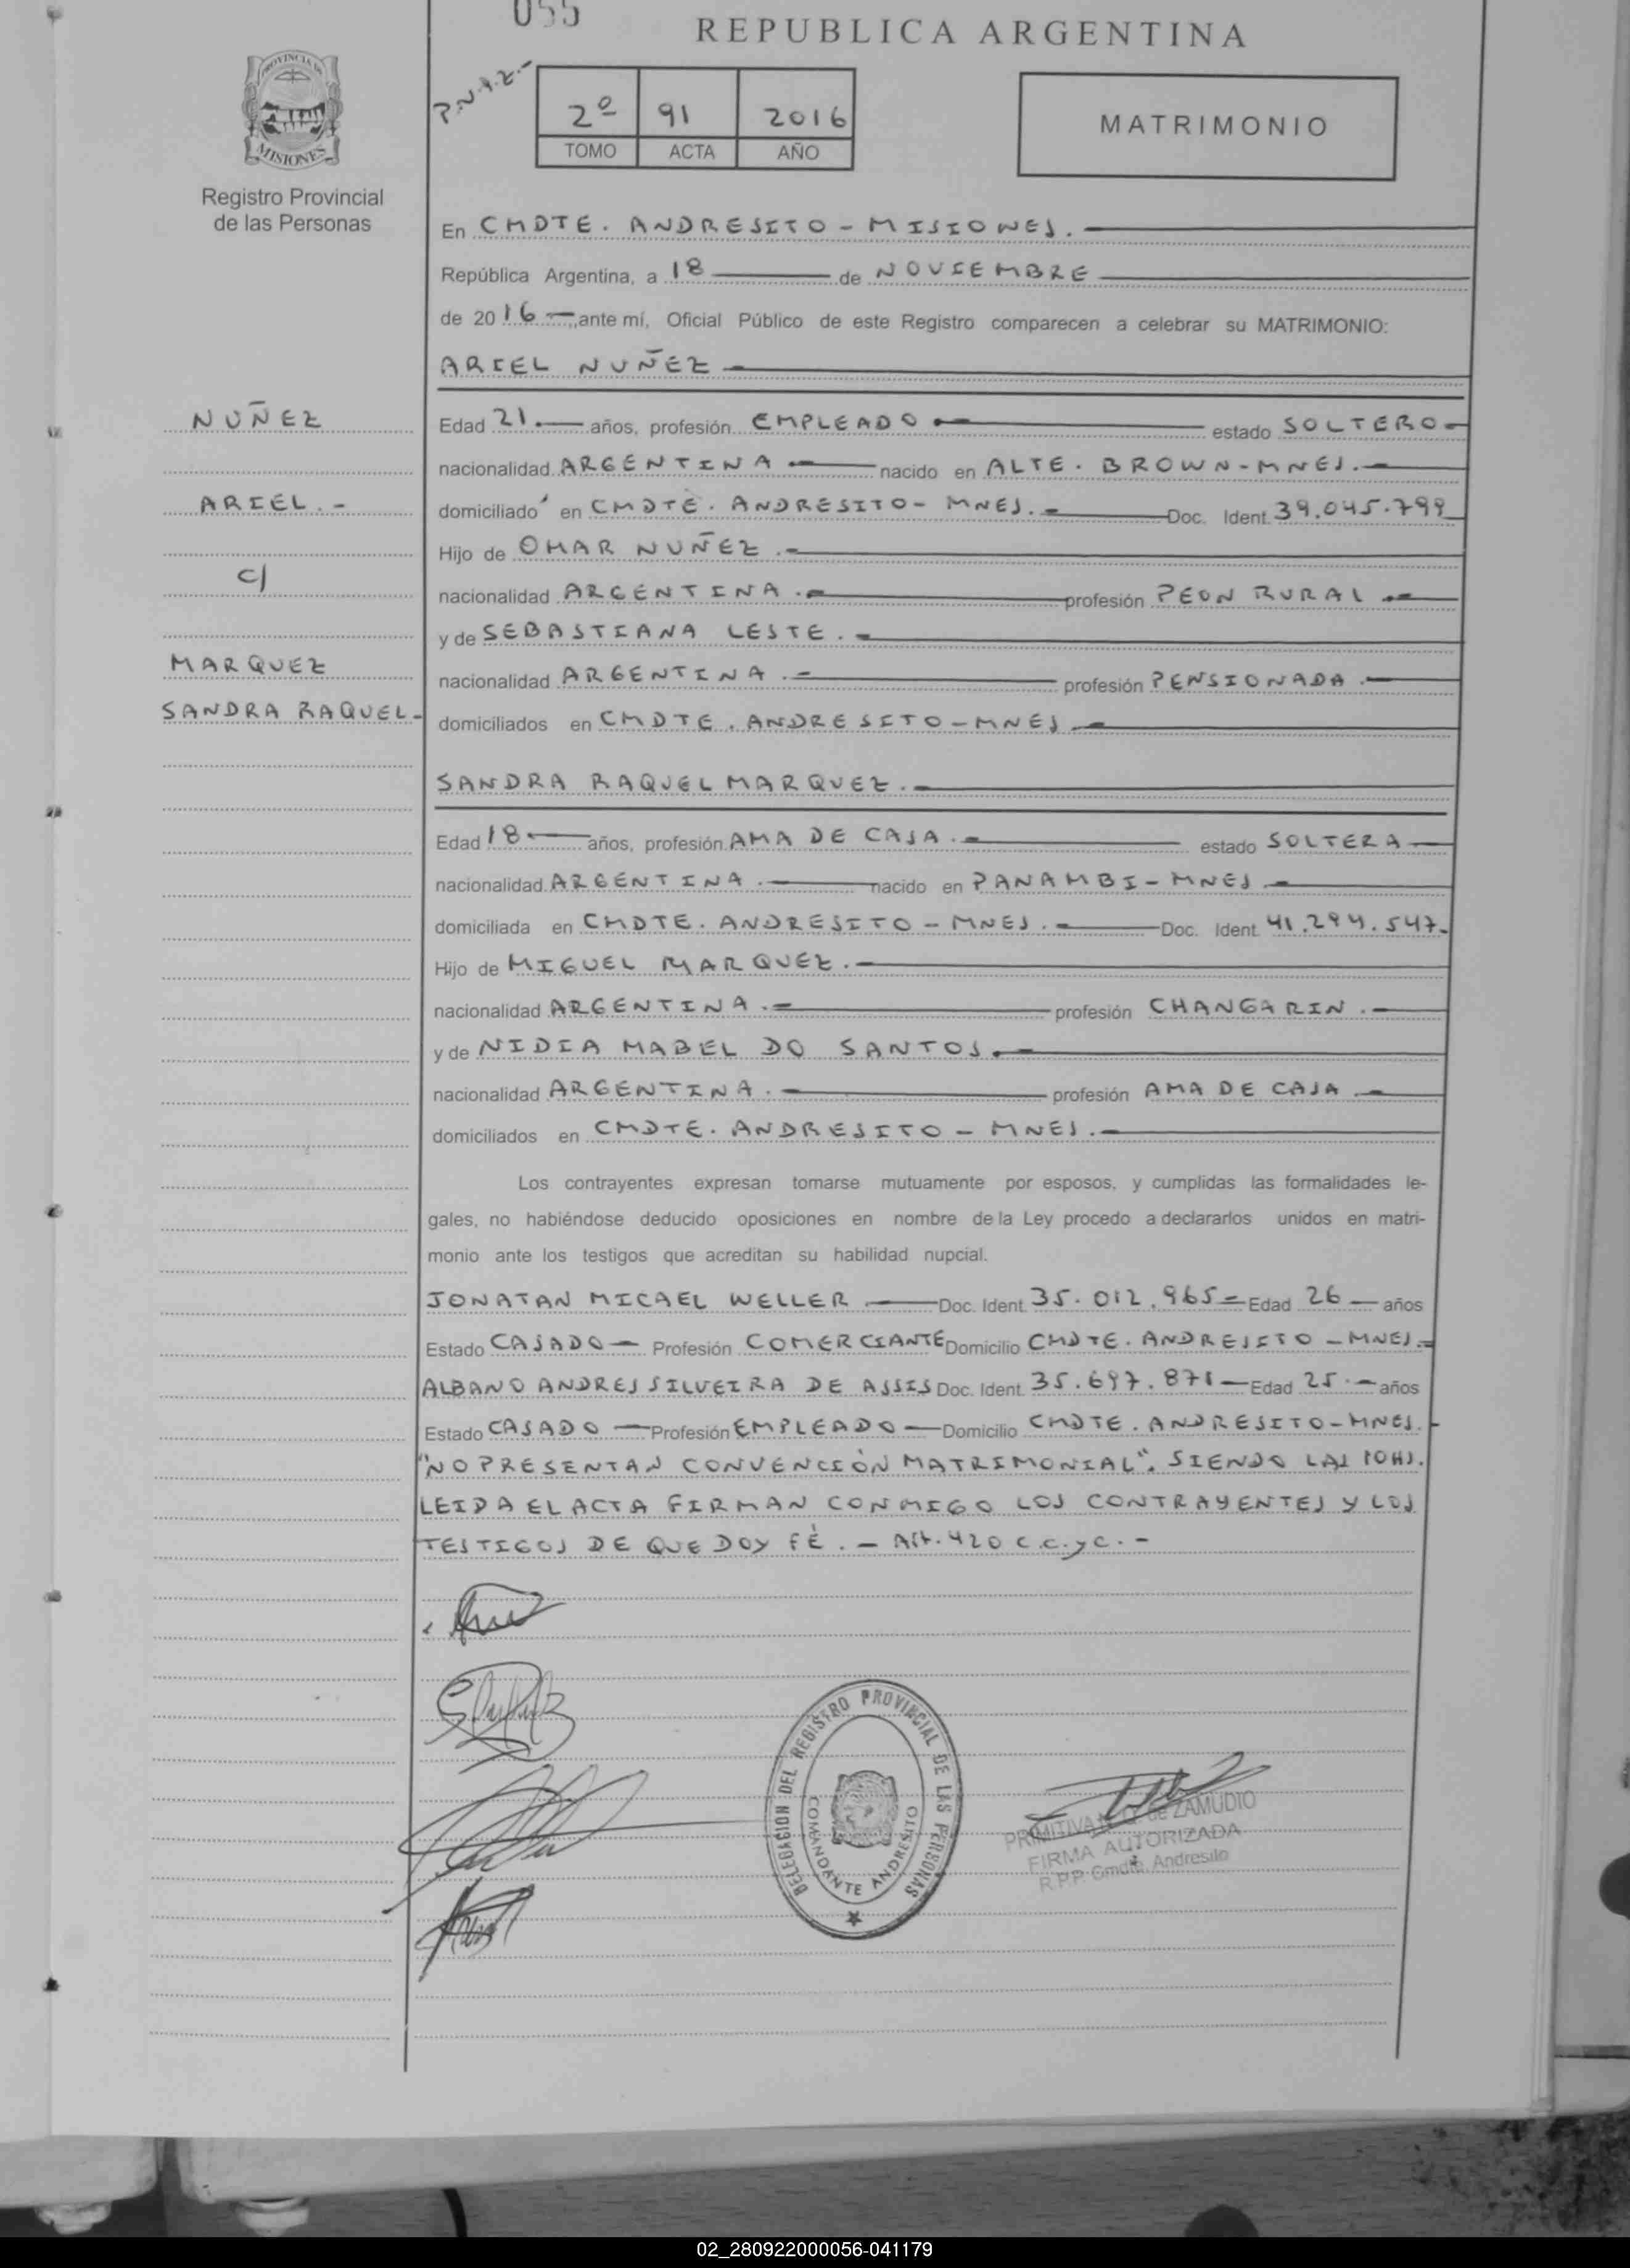 055
REPUBLICA ARGENTINA
PROVINCIA DE
MISIONES
Registro Provincial
de las Personas
2º 91 2016
TOMO ACTA AÑO
MATRIMONIO
En CMDTE. ANDRESITO - MISIONES.
República Argentina, a 18 de NOVIEMBRE
de 2016 ante mí, Oficial Público de este Registro comparecen a celebrar su MATRIMONIO:
ARIEL NUÑEZ
NUÑEZ
ARIEL.-
C/
MARQUEZ
SANDRA RAQUEL-
Edad 21 años, profesión EMPLEADO estado SOLTERO
nacionalidad ARGENTINA nacido en ALTE. BROWN-MNES.
domiciliado en CMDTE. ANDRESITO- MNES. Doc. Ident. 39.045.799
Hijo de OMAR NUÑEZ.
nacionalidad ARGENTINA. profesión PEON RURAL
y de SEBASTIANA LESTE.
nacionalidad ARGENTINA. profesión PENSIONADA.
domiciliados en CMDTE. ANDRESITO-MNES
SANDRA RAQUEL MARQUEZ.
Edad 18 años, profesión AMA DE CASA. estado SOLTERA
nacionalidad ARGENTINA. nacido en PANAMBI-MNES
domiciliada en CMDTE. ANDRESITO - MNES. Doc. Ident. 41.294.547-
Hijo de MIGUEL MARQUEZ.
nacionalidad ARGENTINA. profesión CHANGARIN.
y de NIDIA MABEL DO SANTOS.
nacionalidad ARGENTINA. profesión AMA DE CASA
domiciliados en CMDTE. ANDRESITO - MNES.
Los contrayentes expresan tomarse mutuamente por esposos, y cumplidas las formalidades le-
gales, no habiéndose deducido oposiciones en nombre de la Ley procedo a declararlos unidos en matri-
monio ante los testigos que acreditan su habilidad nupcial.
JONATAN MICAEL WELLER Doc. Ident. 35.012.965 Edad 26 años
Estado CASADO Profesión COMERCIANTE Domicilio CMDTE. ANDRESITO - MNES.
ALBANO ANDRES SILVEIRA DE ASSIS Doc. Ident. 35.697.871 Edad 25 años
Estado CASADO Profesión EMPLEADO Domicilio CMDTE. ANDRESITO-MNES.
"NO PRESENTAN CONVENCIÓN MATRIMONIAL". SIENDO LAS 10HS.
LEIDA EL ACTA FIRMAN CONMIGO LOS CONTRAYENTES Y LOS
TESTIGOS DE QUE DOY FÉ. - Art. 420 C.C.yC. -
DELEGACION DEL REGISTRO PROVINCIAL DE LAS PERSONAS
COMANDANTE ANDRESITO
PRIMITIVA de ZAMUDIO
FIRMA AUTORIZADA
R.P.P. Cmdte. Andresito
02_280922000056-041179